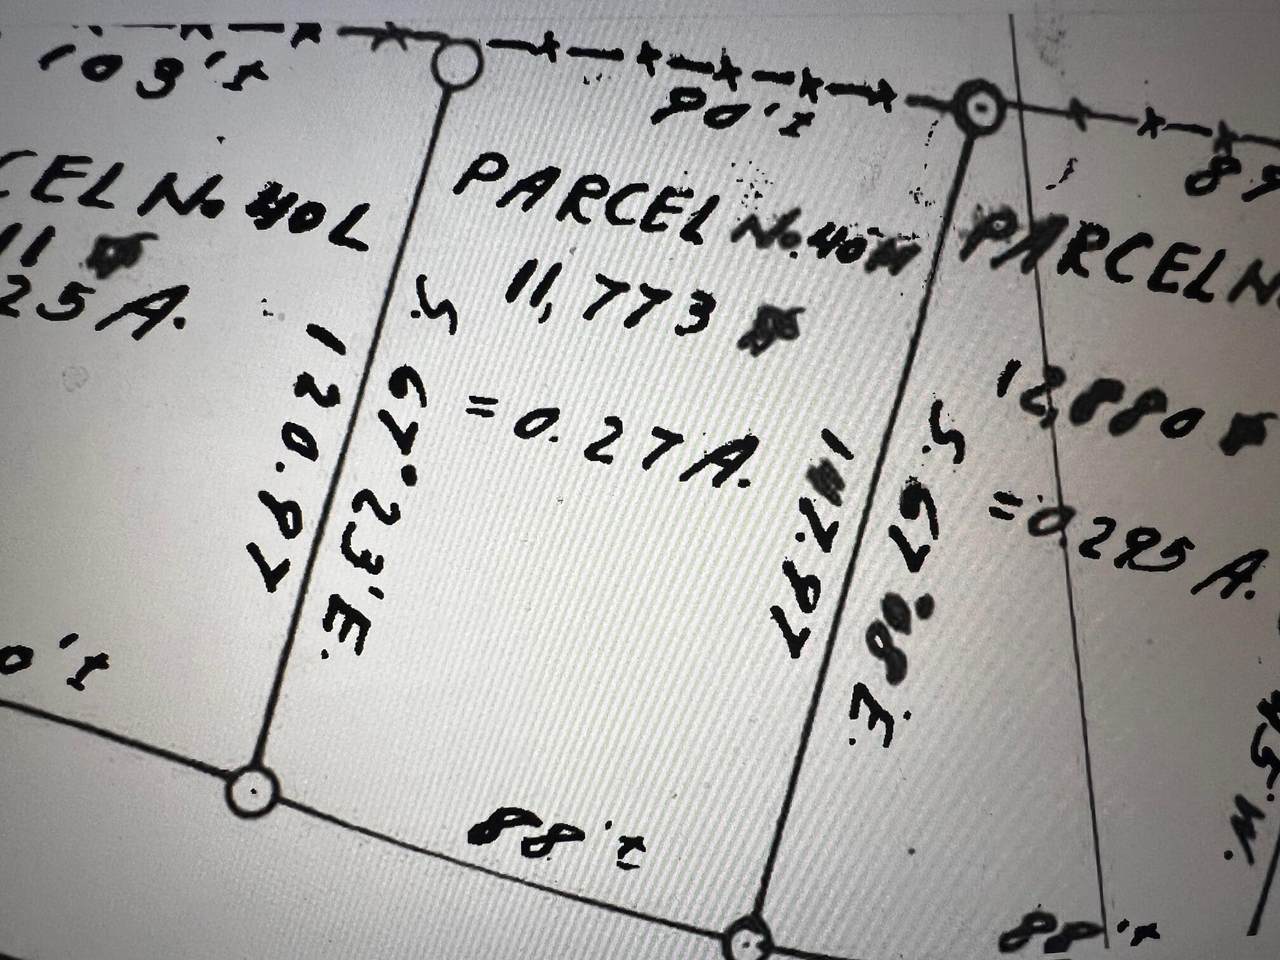 103.'±
90.'±
89
CEL No. 40L
11
25 A.
PARCEL No. 40M
11,773
= 0.27 A.
PARCEL N
12,880
= 0.295 A.
120.97
S. 67° 23' E.
7.97
S. 67° 08' E.
0'±
88.'±
88.'±
W.